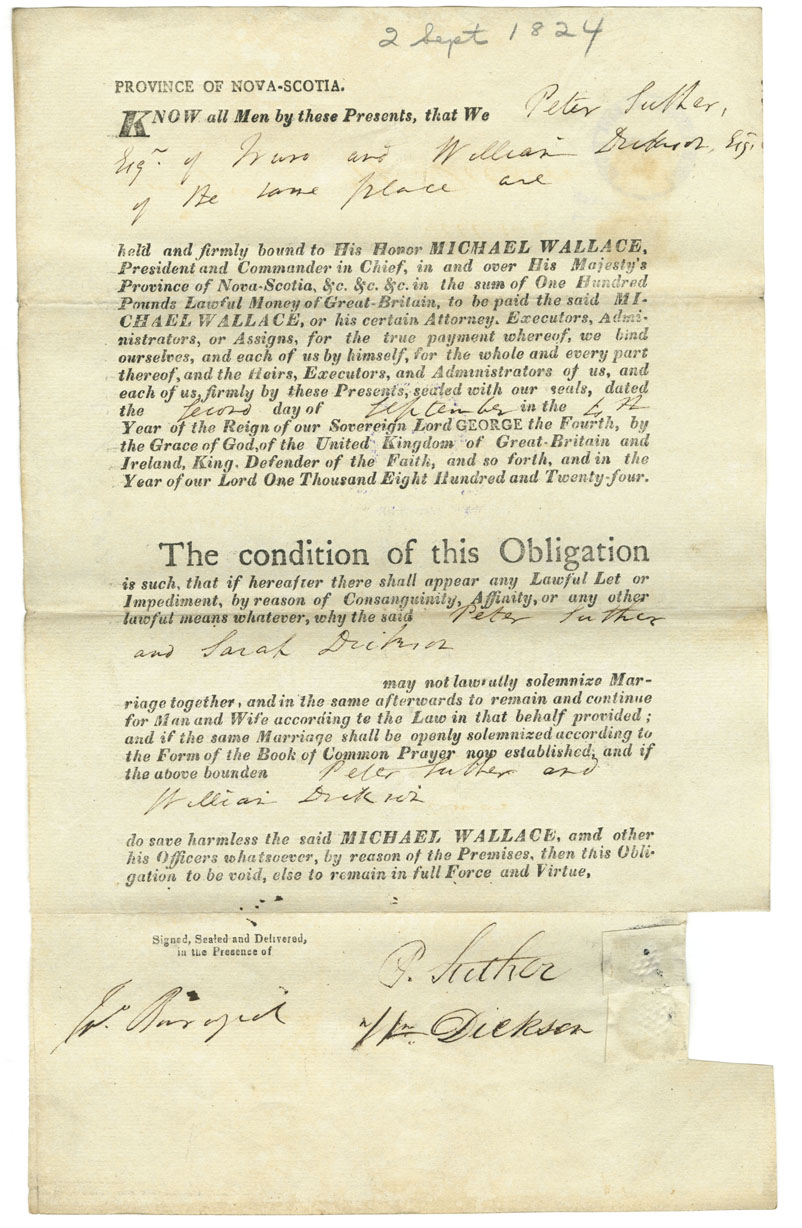 2 Sept 1824
PROVINCE OF NOVA-SCOTIA.
KNOW all Men by these Presents, that We Peter Suther,
Esqr. of Truro and William Dickson, Esq.
of the same place are
held and firmly bound to His Honor MICHAEL WALLACE,
President and Commander in Chief, in and over His Majesty's
Province of Nova-Scotia, &c. &c. &c. in the sum of One Hundred
Pounds Lawful Money of Great-Britain, to be paid the said MI-
CHAEL WALLACE, or his certain Attorney, Executors, Admi-
nistrators, or Assigns, for the true payment whereof, we bind
ourselves, and each of us by himself, for the whole and every part
thereof, and the Heirs, Executors, and Administrators of us, and
each of us, firmly by these Presents, sealed with our seals, dated
the second day of September in the 4th
Year of the Reign of our Sovereign Lord GEORGE the Fourth, by
the Grace of God, of the United Kingdom of Great-Britain and
Ireland, King, Defender of the Faith, and so forth, and in the
Year of our Lord One Thousand Eight Hundred and Twenty-four.
The condition of this Obligation
is such, that if hereafter there shall appear any Lawful Let or
Impediment, by reason of Consanguinity, Affinity, or any other
lawful means whatever, why the said Peter Suther
and Sarah Dickson
may not lawfully solemnize Mar-
riage together, and in the same afterwards to remain and continue
for Man and Wife according te the Law in that behalf provided;
and if the same Marriage shall be openly solemnized according to
the Form of the Book of Common Prayer now established, and if
the above bounden Peter Suther and
William Dickson
do save harmless the said MICHAEL WALLACE, amd other
his Officers whatsoever, by reason of the Premises, then this Obli-
gation to be void, else to remain in full Force and Virtue,
Signed, Sealed and Delivered,
in the Presence of
P. Suther
Wm Dickson